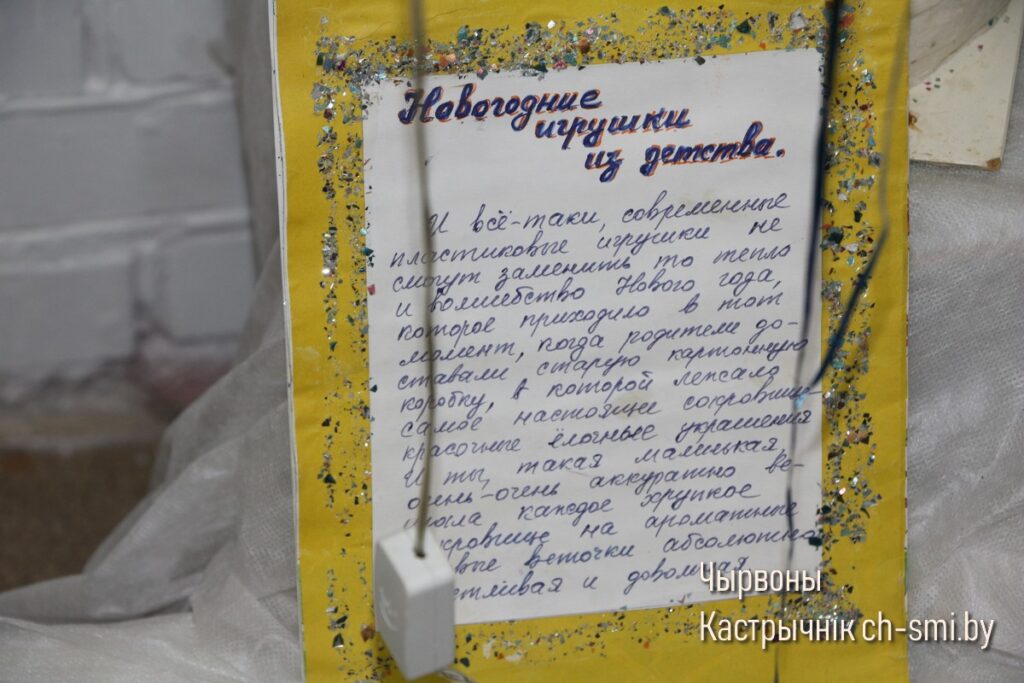 Новогодние
игрушки
из детства.
И всё-таки, современные
пластиковые игрушки не
смогут заменить то тепло
и волшебство Нового года,
которое приходило в тот
момент, когда родители до-
ставали старую картонную
коробку, в которой лежало
самое настоящее сокровище-
красочные ёлочные украшения
И ты, такая маленькая,
очень-очень аккуратно ве-
каждое хрупкое
на ароматные
веточки абсолютно
и довольная
Чырвоны
Кастрычнік ch-smi.by